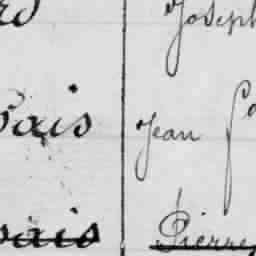 rd Joseph
ais Jean
ais Pierre